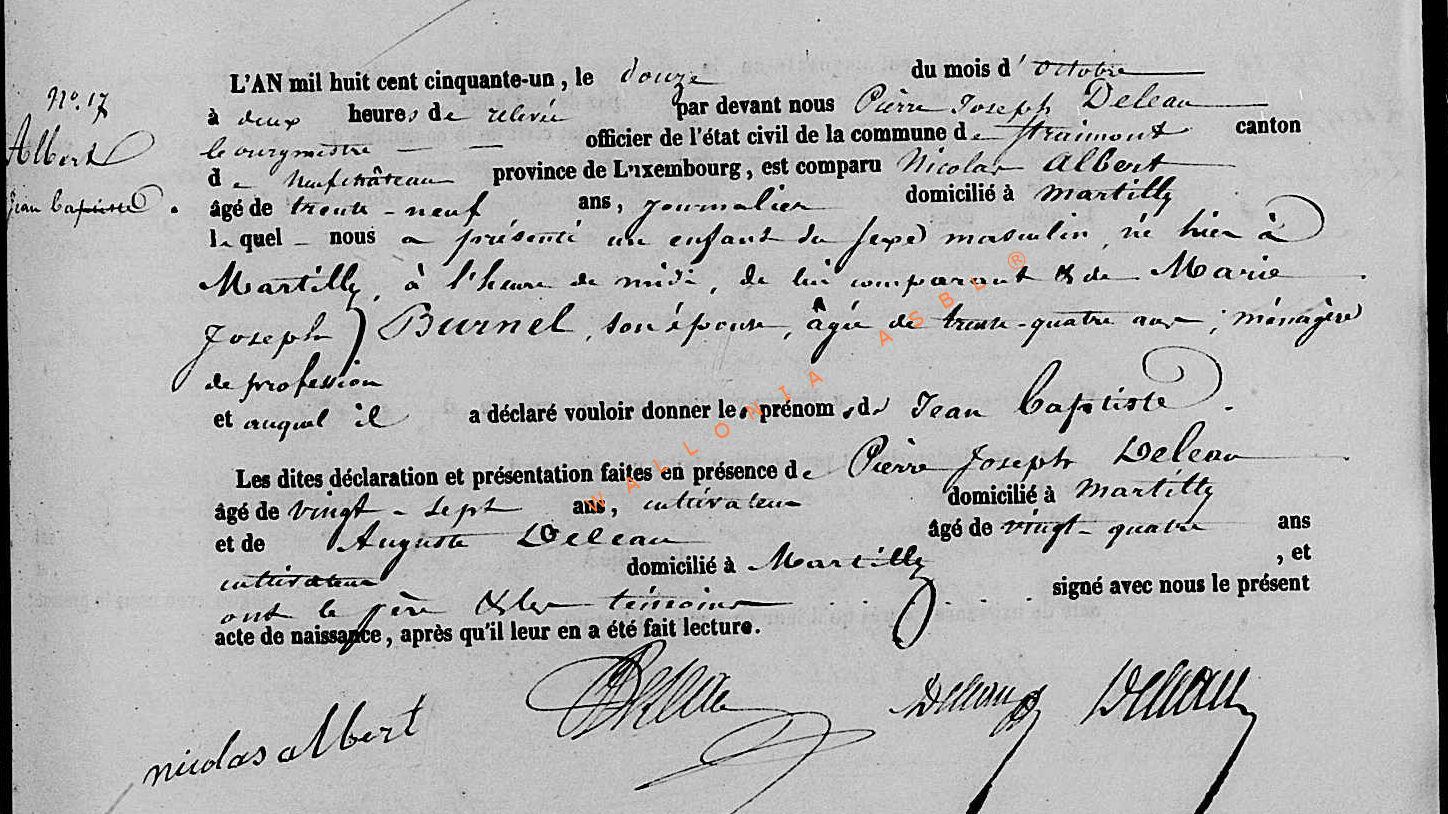 N°. 17
Albert
Jean Baptiste.
L'AN mil huit cent cinquante-un, le douze du mois d'octobre
à deux heures de relevée par devant nous Pierre Joseph Deleau
le ourgmestre officier de l'état civil de la commune de Straimont canton
de Neufchâteau province de Luxembourg, est comparu Nicolas Albert
âgé de trente-neuf ans, journalier domicilié à Martilly
lequel nous a présenté un enfant du sexe masculin, né hier à
Martilly, à l'heure de midi, de lui comparant & de Marie
Joseph Burnel, son épouse, âgée de trente-quatre ans, ménagère
de profession
et auquel il a déclaré vouloir donner les prénoms de Jean Baptiste.
Les dites déclaration et présentation faites en présence de Pierre Joseph Deleau
âgé de vingt-sept ans, cultivateur domicilié à Martilly
et de Auguste Deleau âgé de vingt-quatre ans
cultivateur domicilié à Martilly, et
ont le père & les témoins signé avec nous le présent
acte de naissance, après qu'il leur en a été fait lecture.
nicolas albert Deleau Deleau Deleau
WALLONIA ASBL ®